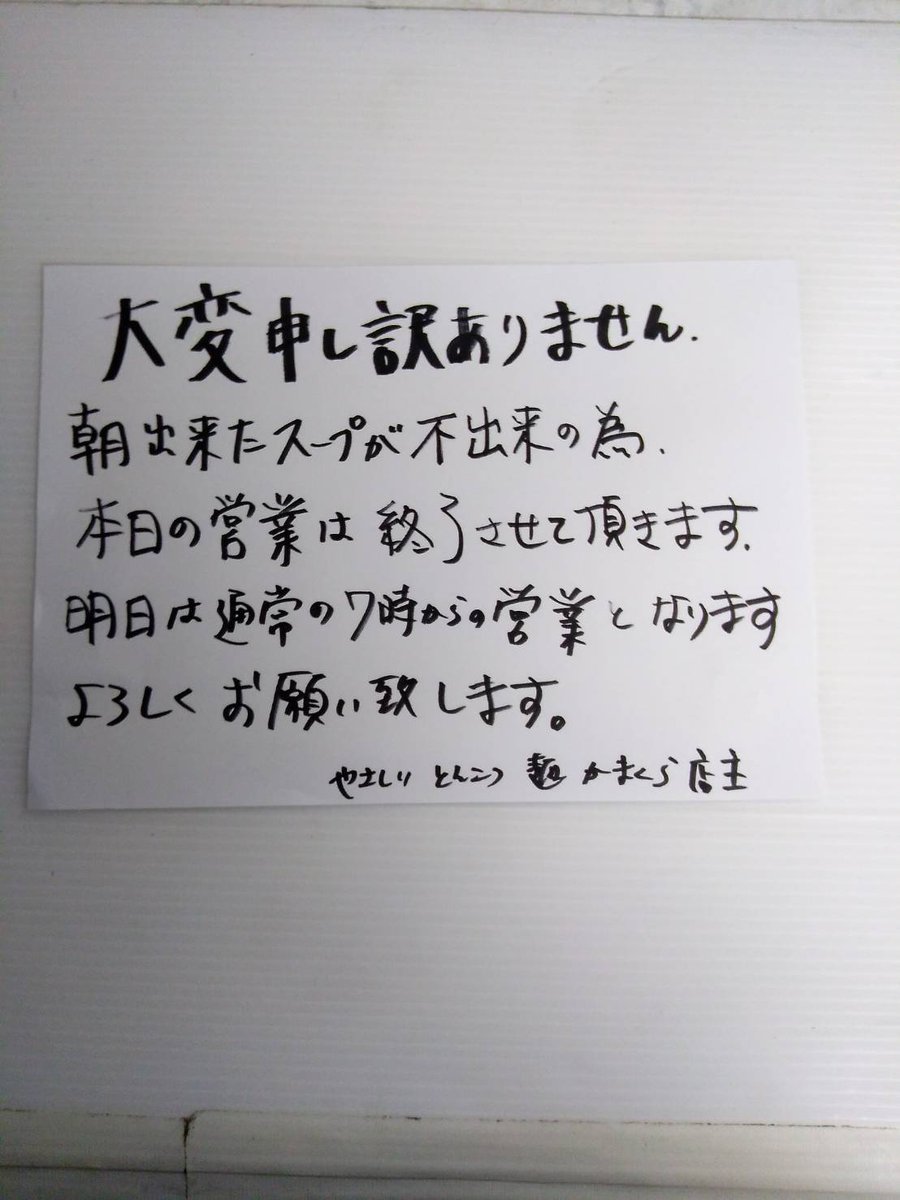 大変申し訳ありません.
朝出来たスープが不出来の為、
本日の営業は終了させて頂きます.
明日は通常の7時からの営業となります
よろしくお願い致します。
やさしい とんこつ 麺 かまくら店主